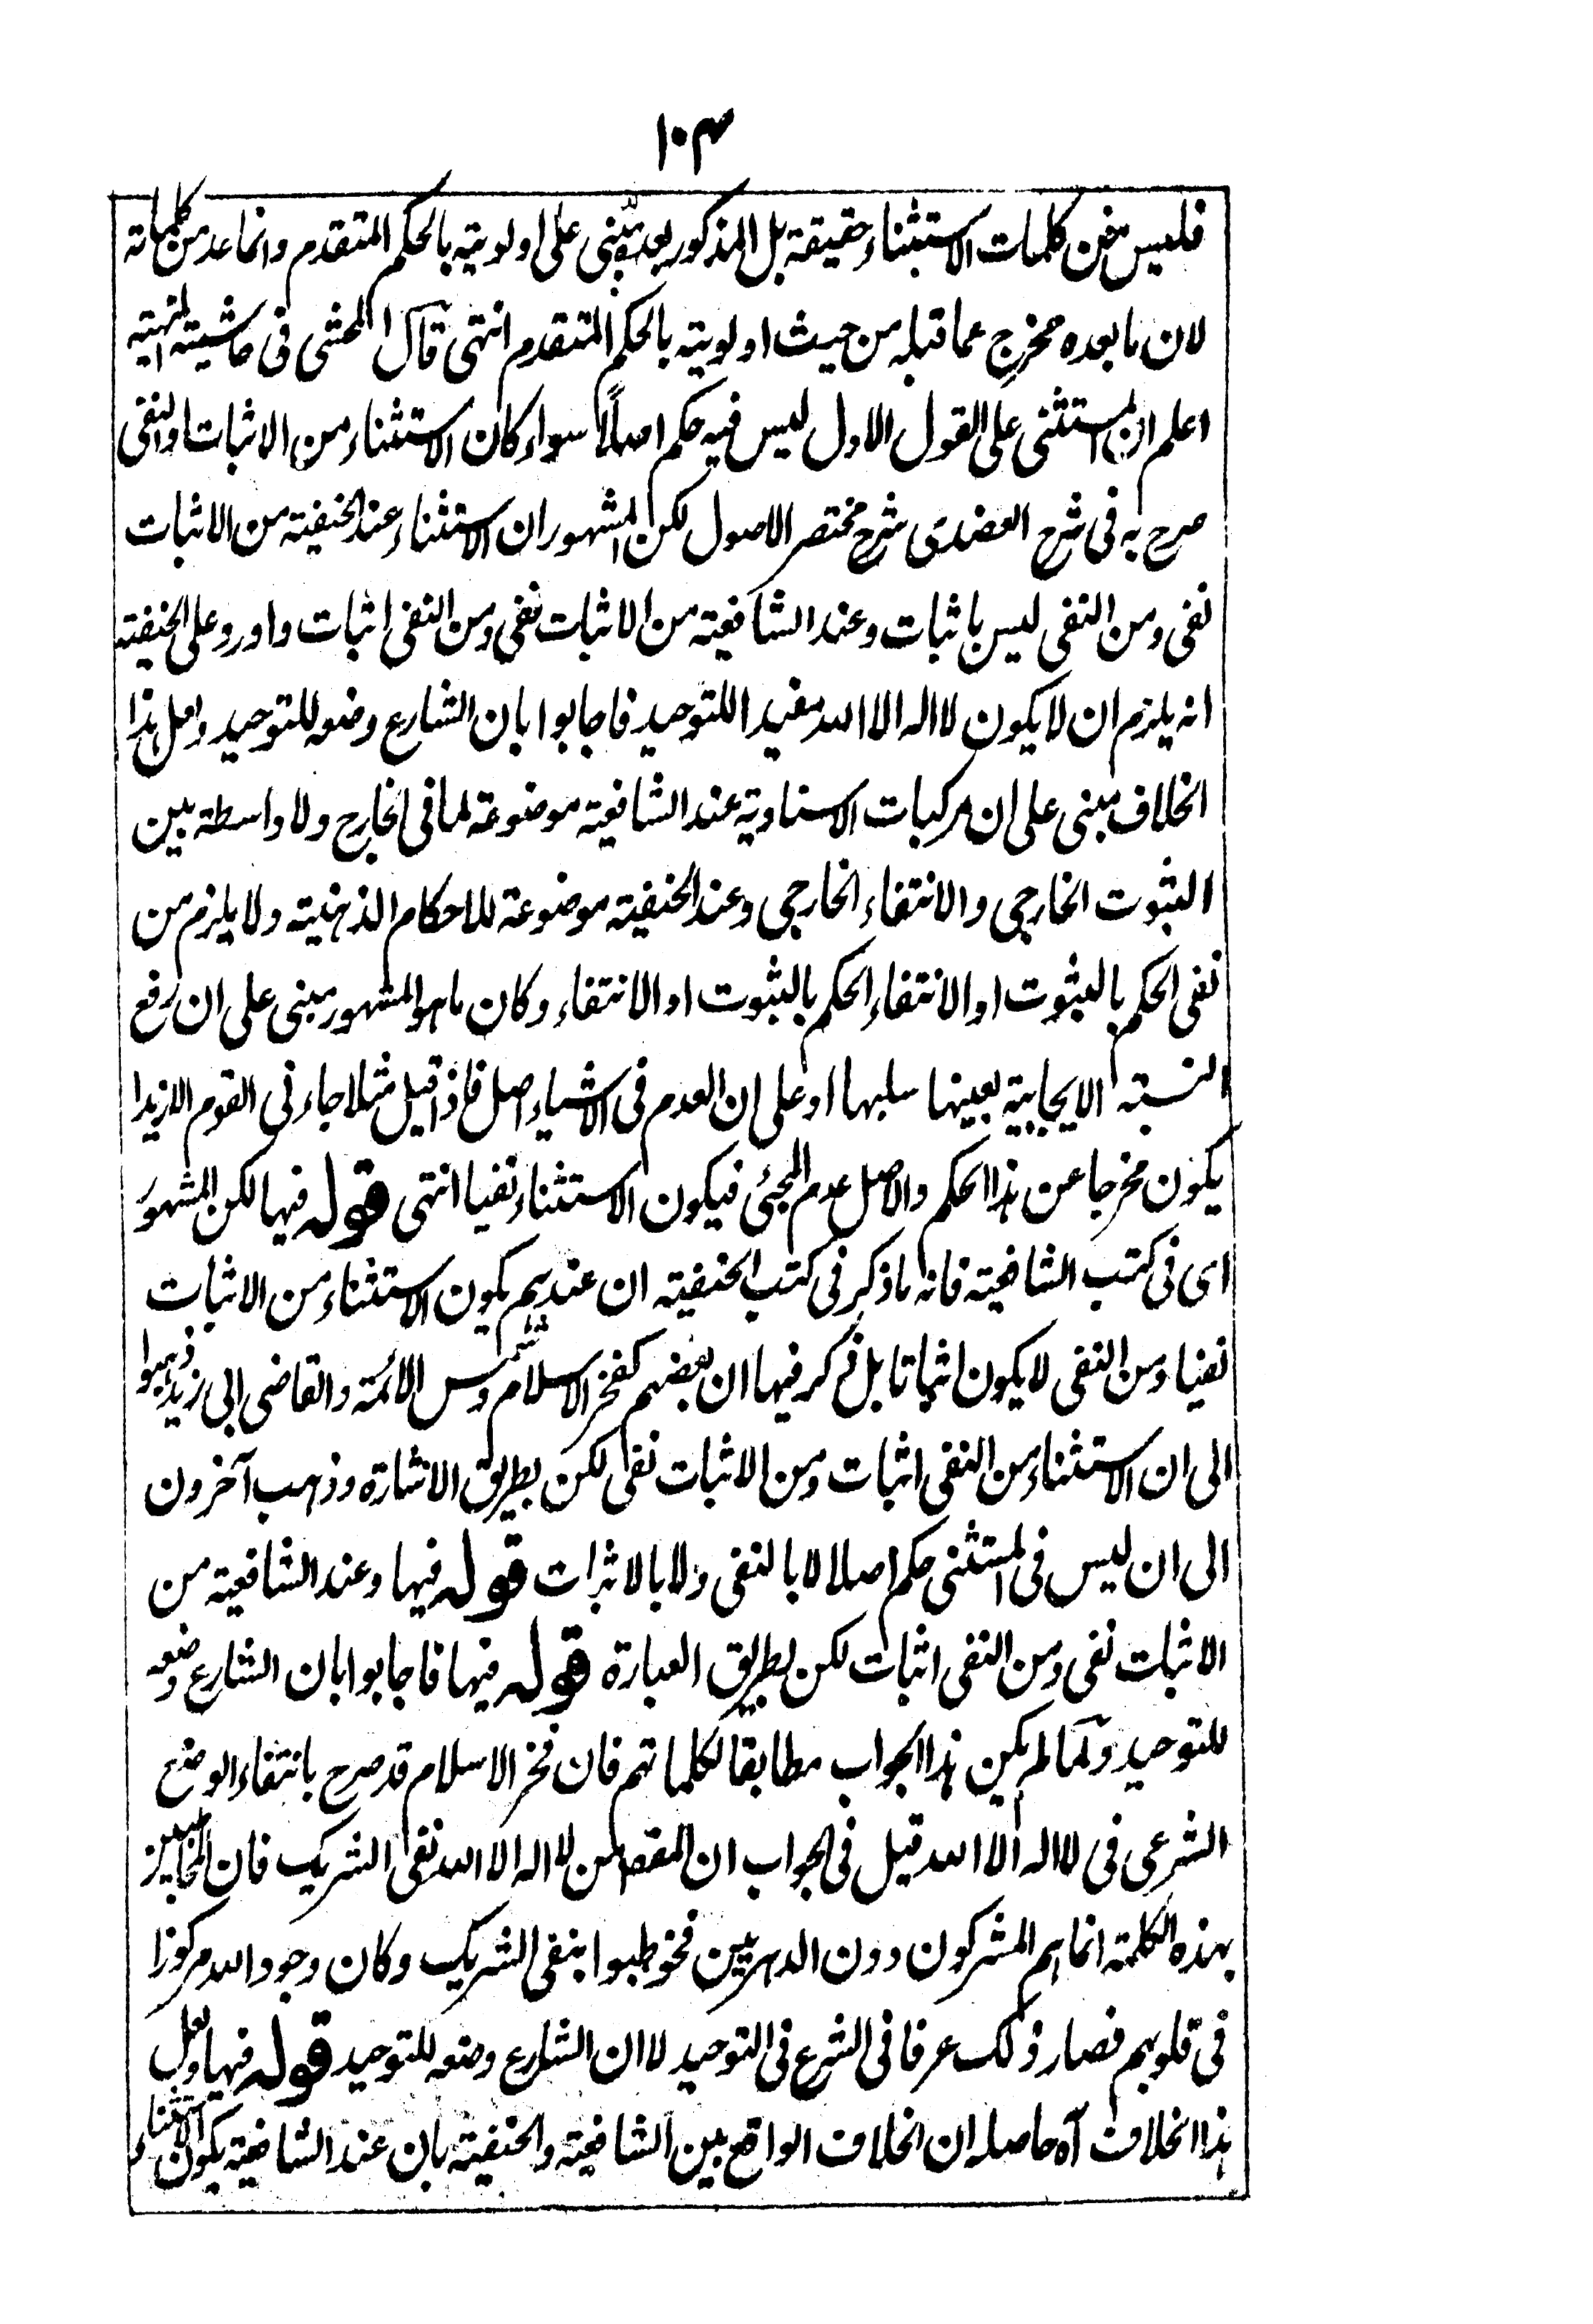 ١٠٤
فليس من كلمات الاستثناء حقيقة بل المذكور بعده مبنى على اولويته بالحكم المتقدم وانما عد من كلماته
لان ما بعده مخرج عما قبله من حيث اولويته بالحكم المتقدم انتهى قال المحشى فى حاشيته المنهية
اعلم ان المستثنى على القول الاول ليس فيه حكم اصلاً سواء كان الاستثناء من الاثبات او النفى
صرح به فى شرح العضدى شرح مختصر الاصول لكن المشهور ان الاستثناء عند الحنفية من الاثبات
نفى ومن النفى ليس باثبات وعند الشافعية من الاثبات نفى ومن النفى اثبات واورد على الحنفية
انه يلزم ان لا يكون لا اله الا الله مفيدا للتوحيد فاجابوا بان الشارع وضعه للتوحيد ولعل هذا
الخلاف مبنى على ان مركبات الاسنادية عند الشافعية موضوعة لما فى الخارج ولا واسطة بين
الثبوت الخارجى والانتفاء الخارجى وعند الحنفية موضوعة للاحكام الذهنية ولا يلزم من
نفى الحكم بالثبوت او الانتفاء الحكم بالثبوت او الانتفاء وكان ما هو المشهور مبنى على ان رفع
النسبة الايجابية بعينها سلبها او على ان العدم فى الاشياء اصل فاذا قيل مثلا جاءنى القوم الا زيدا
يكون مخرجا عن هذا الحكم والاصل عدم المجئ فيكون الاستثناء نفيا انتهى قوله فيها لكن المشهور
اى فى كتب الشافعية فانه ما ذكر فى كتب الحنفية ان عندهم يكون الاستثناء من الاثبات
نفيا ومن النفى لا يكون اثباتا بل ذكر فيها ان بعضهم كفخر الاسلام وشمس الائمة والقاضى ابى زيد ذهبوا
الى ان الاستثناء من النفى اثبات ومن الاثبات نفى لكن بطريق الاشارة وذهب آخرون
الى ان ليس فى المستثنى حكم اصلا لا بالنفى ولا بالاثبات قوله فيها وعند الشافعية من
الاثبات نفى ومن النفى اثبات لكن بطريق العبارة قوله فيها فاجابوا بان الشارع وضعه
للتوحيد ولما لم يكن هذا الجواب مطابقا لكلماتهم فان فخر الاسلام قد صرح بانتفاء الوضع
الشرعى فى لا اله الا الله قيل فى الجواب ان المقصد من لا اله الا الله نفى الشريك فان المخاطبين
بهذه الكلمة انما هم المشركون دون الدهريين فخوطبوا بنفى الشريك وكان وجود الله مركوزا
فى قلوبهم فصار ذلك عرفا فى الشرع فى التوحيد لا ان الشارع وضعه للتوحيد قوله فيها ولعل
هذا الخلاف آه حاصله ان الخلاف الواقع بين الشافعية والحنفية بان عند الشافعية يكون الاستثناء